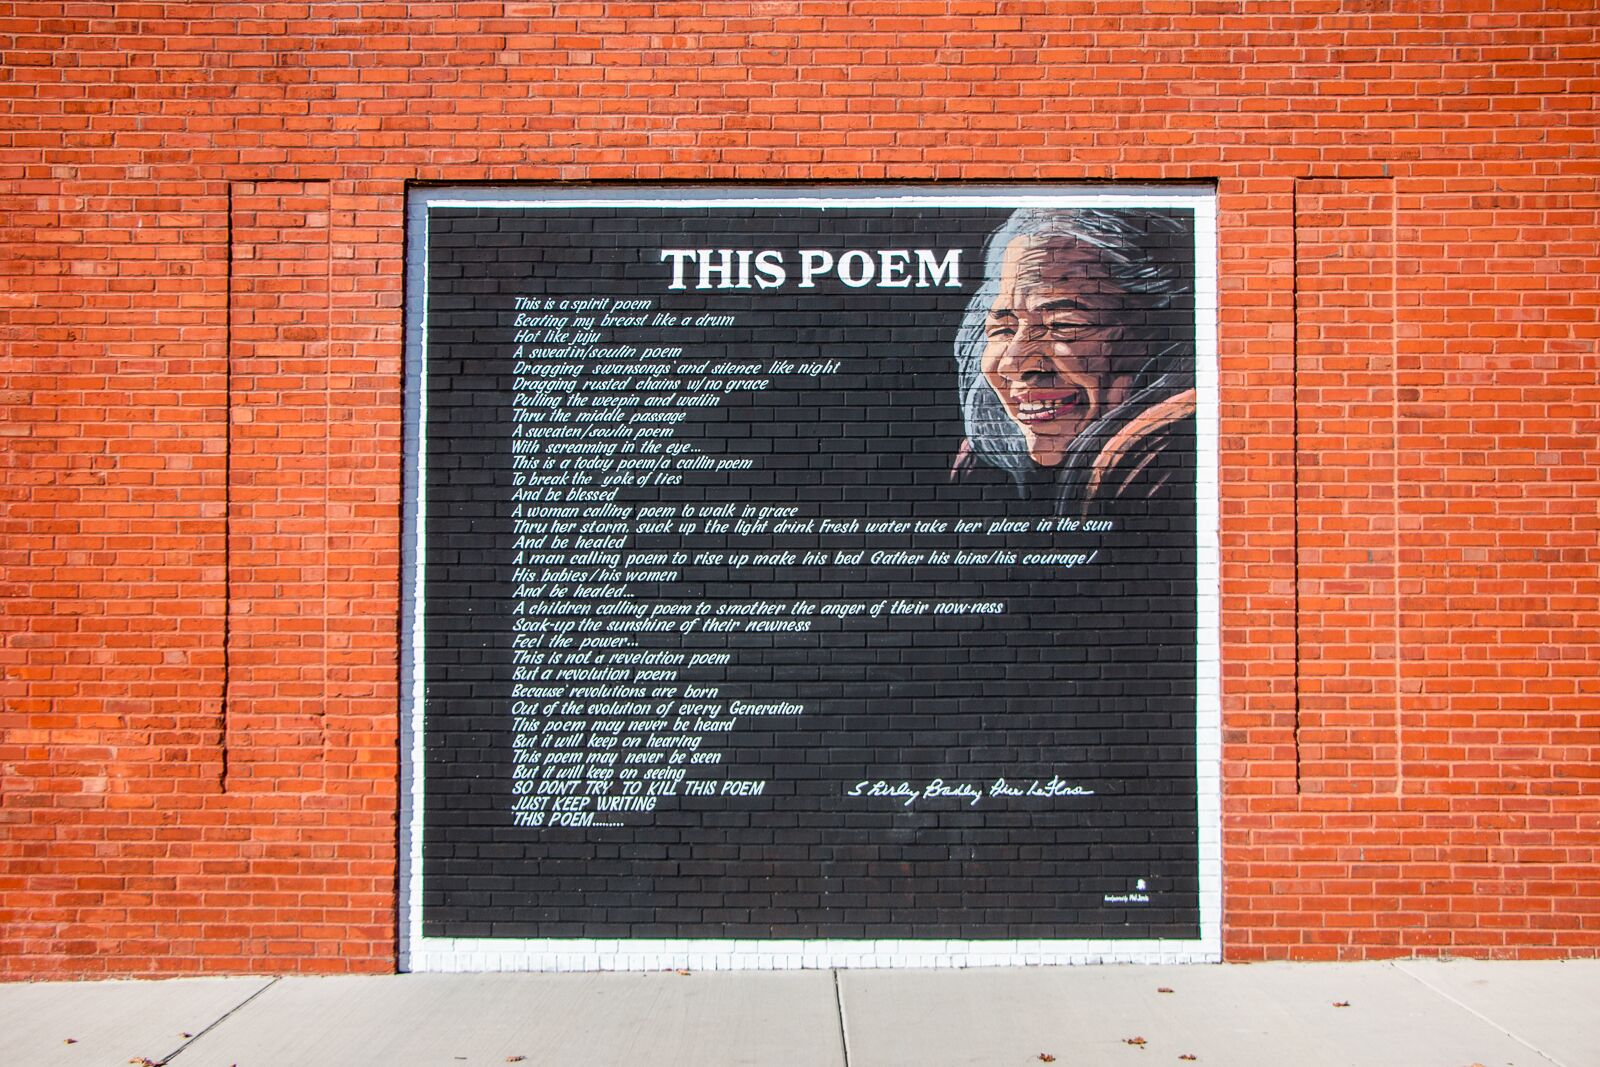 THIS POEM
This is a spirit poem
Beating my breast like a drum
Hot like juju
A sweatin/soulin poem
Dragging swansongs and silence like night
Dragging rusted chains w/no grace
Pulling the weepin and wailin
Thru the middle passage
A sweaten/soulin poem
With screaming in the eye...
This is a today poem/a callin poem
To break the yoke of lies
And be blessed
A woman calling poem to walk in grace
Thru her storm, suck up the light drink Fresh water take her place in the sun
And be healed
A man calling poem to rise up make his bed Gather his loins/his courage/
His babies/his women
And be healed...
A children calling poem to smother the anger of their now-ness
Soak-up the sunshine of their newness
Feel the power...
This is not a revelation poem
But a revolution poem
Because revolutions are born
Out of the evolution of every Generation
This poem may never be heard
But it will keep on hearing
This poem may never be seen
But it will keep on seeing
SO DON'T TRY TO KILL THIS POEM
JUST KEEP WRITING
THIS POEM.........
Shirley Bradley LeFlore
Phil Jarvis